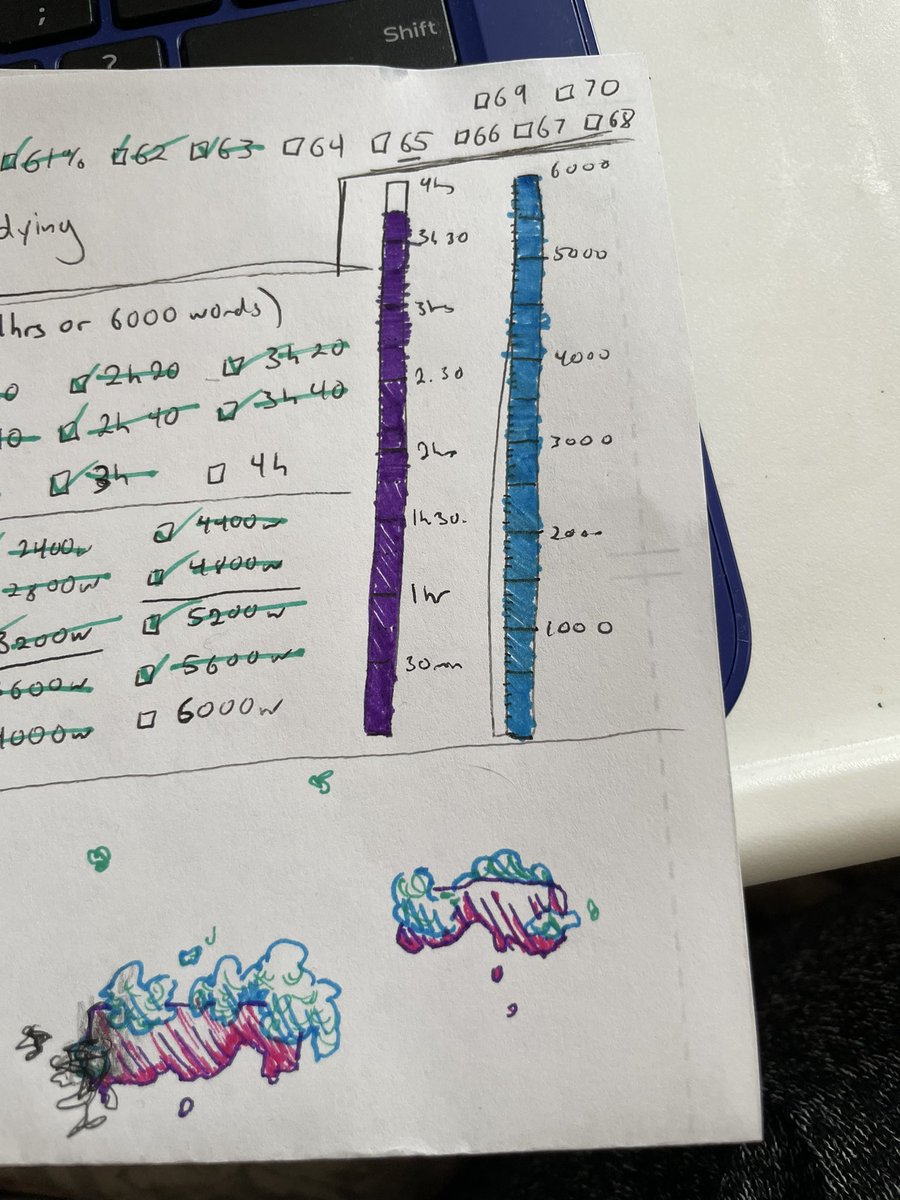 ;
?
Shift
69 70
61% 62 63 64 65 66 67 68
dying
hrs or 6000 words)
0 2h 20 3h 20
40 2h 40 3h 40
3h 4h
2400w 4400w
2800w 4800w
3200w 5200w
600w 5600w
000w 6000w
4h
3h 30
3hs
2.30
2hs
1h30.
1hr
30mn
6000
5000
4000
3000
2000
1000